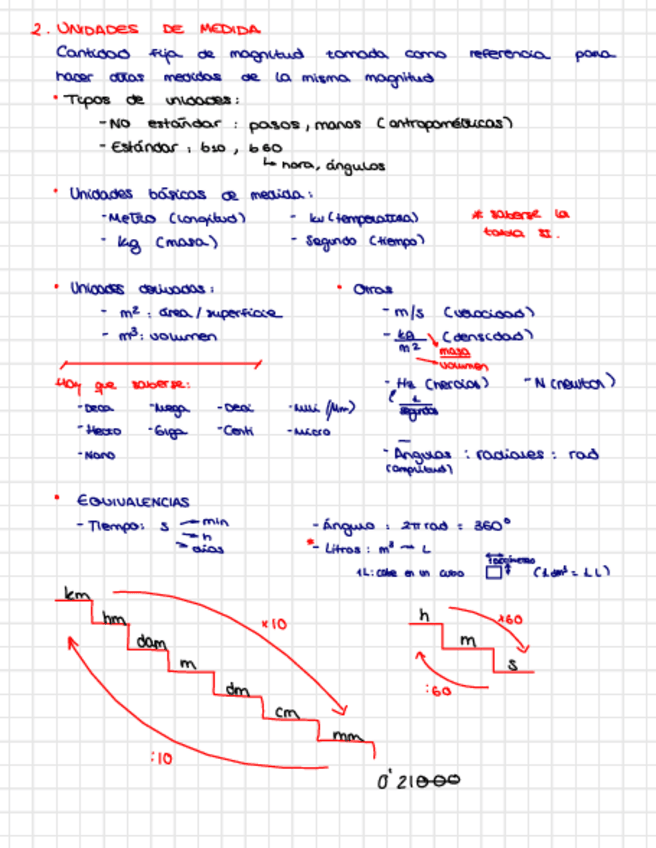 2. UNIDADES DE MEDIDA
Cantidad fija de magnitud tomada como referencia para
hacer otras medidas de la misma magnitud
• Tipos de unidades:
- No estándar: pasos, manos (antropométricas)
- Estándar: b10, b60
↳ hora, ángulos
• Unidades básicas de medida:
- Metro (longitud) - kw (temperatura)
- kg (masa) - Segundo (tiempo)
* saberse la
tabla II.
• Unidades derivadas:
- m²: área / superficie
- m³: volumen
• Otras
- m/s (velocidad)
- kg/m² (densidad)
masa
volumen
- Hz (hercios) - N (newton)
1/segundos
- Ángulos: radianes: rad
(amplitud)
Hay que saberse:
- Deca - Mega - Deci - Mili (mm)
- Hecto - Giga - Centi - Micro
- Nano
• EQUIVALENCIAS
- Tiempo: s → min
→ h
→ días
- Ángulo: 2π rad = 360°
* - Litros: m³ → L
1L: cabe en un cubo (1 dm³ = 1 L)
km
hm
dam
m
dm
cm
mm
×10
:10
h
m
s
×60
:60
0'21000